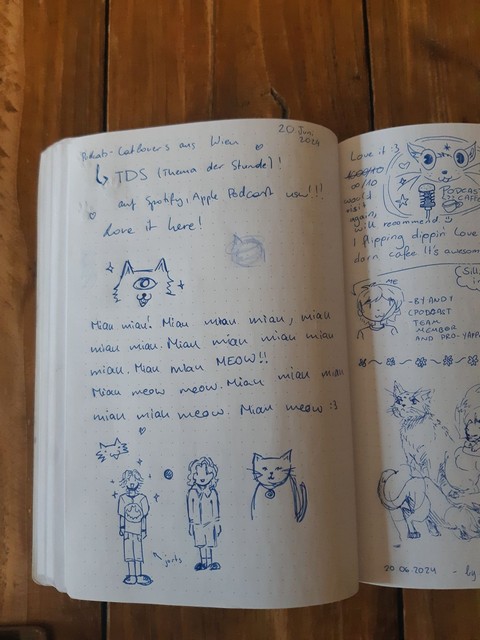 20 Juni
2024
Podcats-Catlovers aus Wien
↳ TDS (Thema der Stunde)!
auf Spotify, Apple Podcast usw!!!
love it here!
Miau miau! Miau miau miau, miau
miau miau. Miau miau miau miau
miau. Miau miau MEOW!!
Miau meow meow. Miau miau miau
miau miau meow. Miau meow :3
jorts
Love it :3
00/10
would
visit
again,
will recommend
PODCAST
CAFFE
I flipping dippin love
darn cafee It's awesom
ME
Sill
-BY ANDI
(PODCAST
TEAM
MEMBER
AND PRO-YAPP
20.06.2024 - by